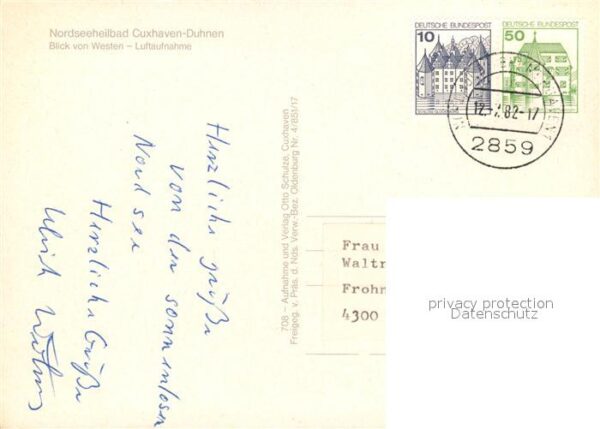 Nordseeheilbad Cuxhaven-Duhnen
Blick von Westen – Luftaufnahme
DEUTSCHE BUNDESPOST
10
DEUTSCHE BUNDESPOST
50
12.-7.82-17
2859
708 – Aufnahme und Verlag Otto Schulze, Cuxhaven
Freigeg. v. Präs. d. Nds. Verw.-Bez. Oldenburg Nr. 4/851/17
Herzliche Grüße
von der sonnenlosen
Nordsee
Herzliche Grüße
Ulrich
Frau
Waltr
Frohn
4300
privacy protection
Datenschutz